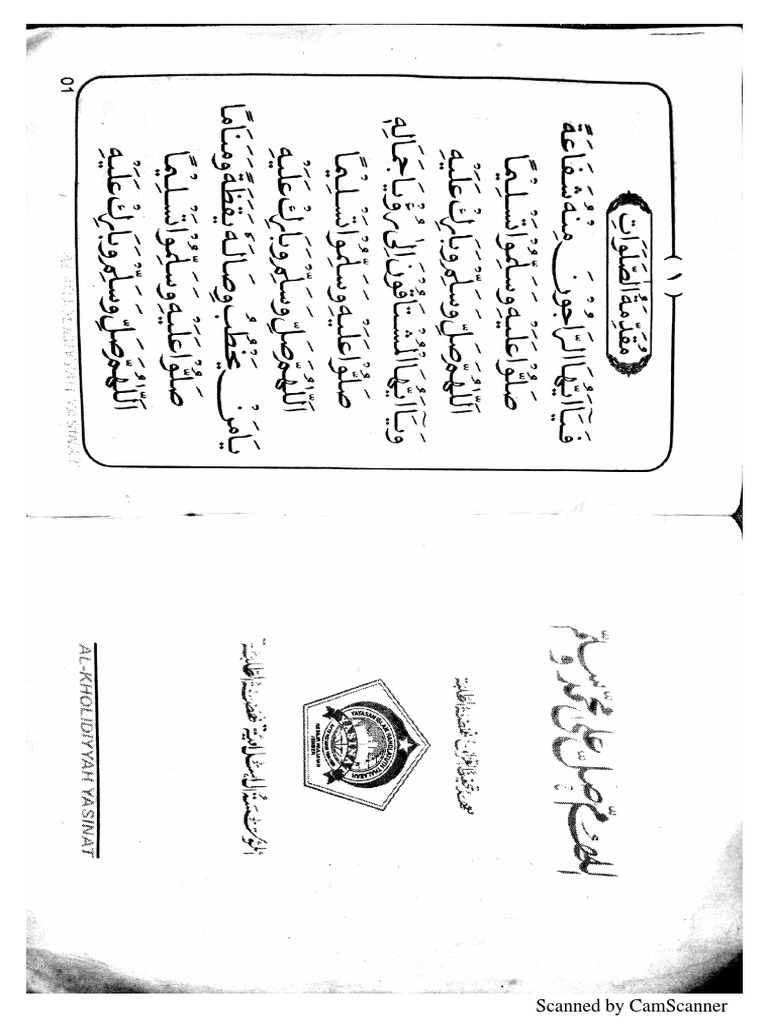 (١)
مُقَدِّمَةُ الصَّلَوَاتِ
فَيَآ اَيُّهَا الرَّاجُوْنَ مِنْهُ شَفَاعَةً
صَلُّوْا عَلَيْهِ وَسَلِّمُوْا تَسْلِيْمًا
اَللّٰهُمَّ صَلِّ وَسَلِّمْ وَبَارِكْ عَلَيْهِ
وَيَآ اَيُّهَا الْمُشْتَاقُوْنَ اِلٰى رُؤْيَا جَمَالِهِ
صَلُّوْا عَلَيْهِ وَسَلِّمُوْا تَسْلِيْمًا
اَللّٰهُمَّ صَلِّ وَسَلِّمْ وَبَارِكْ عَلَيْهِ
يَا مَنْ يَخْطُبُ وِصَالَهُ يَقَظَةً وَمَنَامًا
صَلُّوْا عَلَيْهِ وَسَلِّمُوْا تَسْلِيْمًا
اَللّٰهُمَّ صَلِّ وَسَلِّمْ وَبَارِكْ عَلَيْهِ
01
اللهم صل على محمد وسلم
YAYASAN ISLAM
YASINAT
AL-KHOLIDIYYAH YASINAT
Scanned by CamScanner